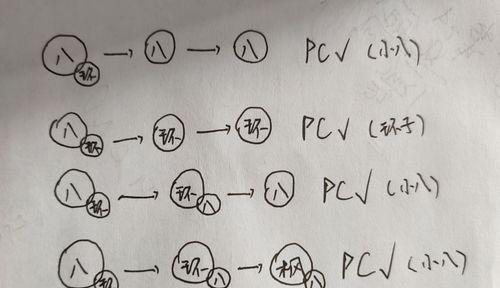 八 环一 → 八 → 八 PC√ (小八)
八 环一 → 环一 → 环一 PC√ (环子)
八 环一 → 环一 八 → 八 PC√ (小八)
八 → 环一 八 → 八 PC√ (小八)